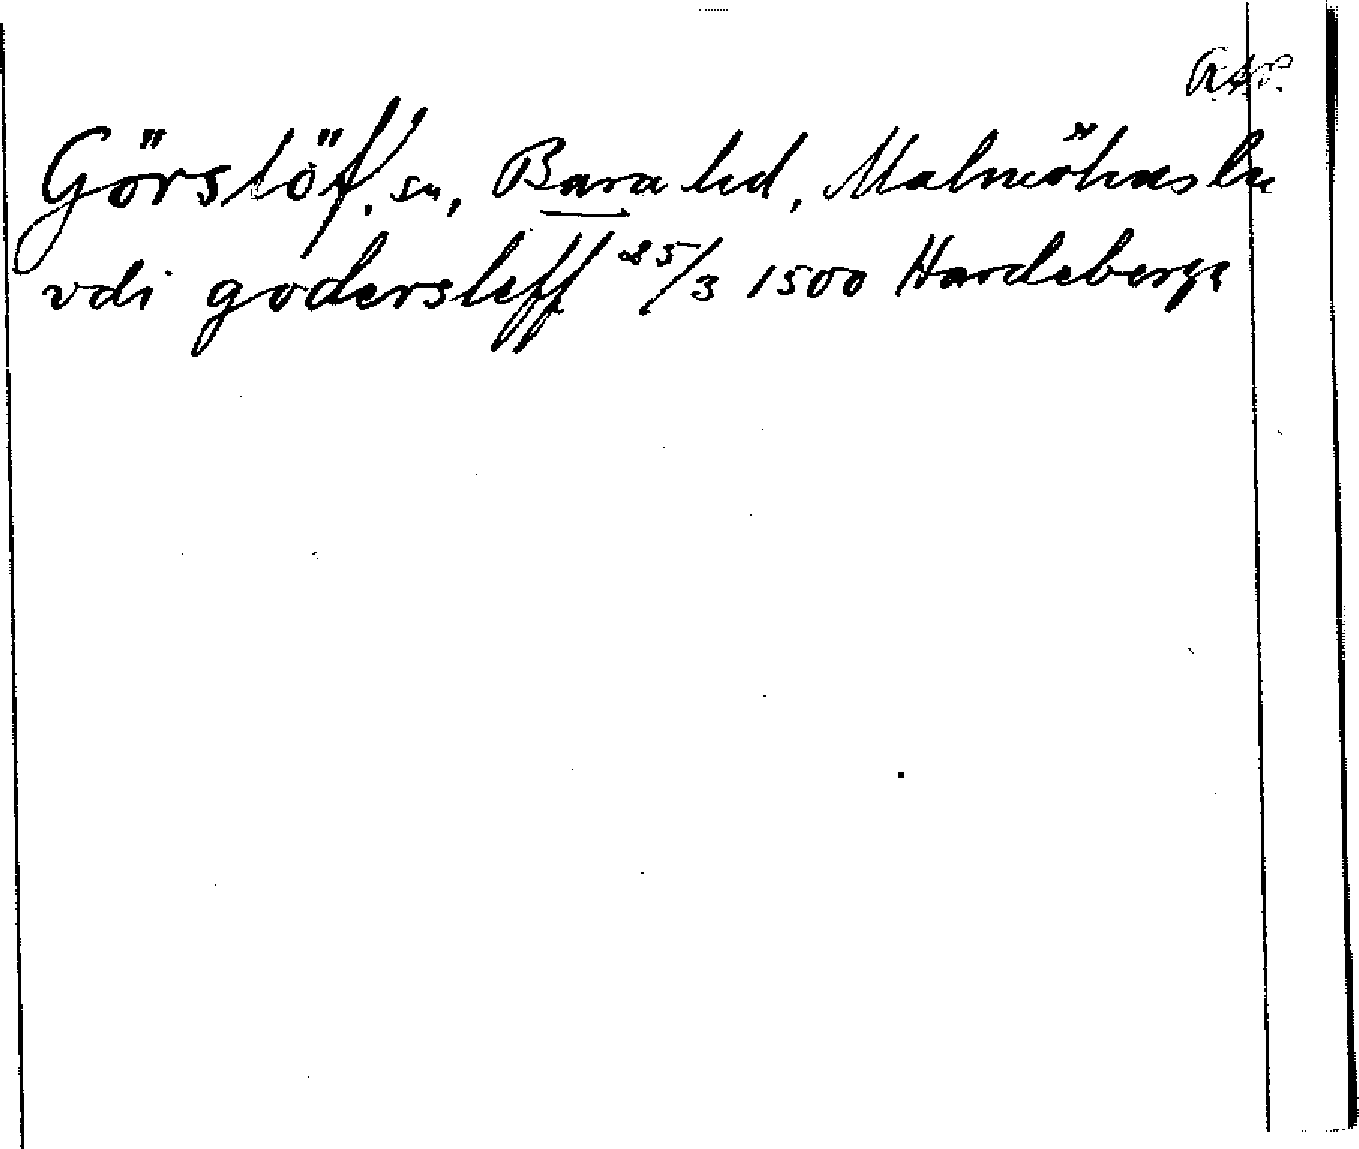 Görslöf, sn, Bara hd, Malmöhus län
vdi godersleff 25/3 1500 Hardeberga